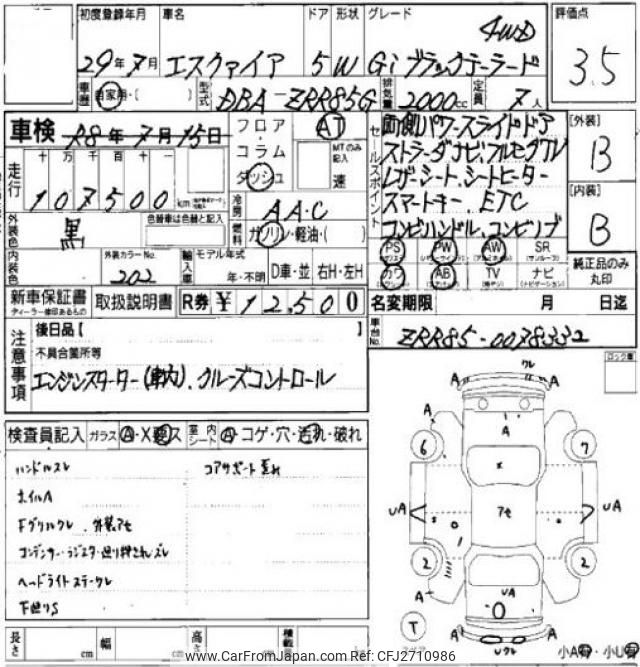 初度登録年月 車名 ドア 形状 グレード 評価点
4WD
29年7月 エスクァイア 5 W Gi ブラックテーラード 3.5
車歴 自家用・( ) 型式 DBA-ZRR85G 排気量 2000cc 定員 7人
車検 R8年7月15日
フロア・コラム ダッシュ
AT
MTのみ記入 速
セールスポイント
両側パワースライドドア
ストラーダナビ,フルセグTV
レザーシート、シートヒーター
スマートキー、ETC
コンビハンドル、コンビノブ
[外装] B
[内装] B
走行 十 万 千 百 十 一
107500 km
冷房 AAC
燃料 ガソリン・軽油・( )
外装色 黒 色替車は色替と記入
内装色 外装カラーNo. 202
輸入車 モデル年式 年・不明 D車・並 右H・左H
PS PW AW SR
(サンルーフ)
カワ AB TV ナビ
(ナビゲーション)
純正品のみ丸印
新車保証書 取扱説明書 R券 ¥12,500
ディーラー確印あるもの
名変期限 月 日迄
車台No. ZRR85-0078332
注意事項
後日品【 】
不具合箇所等
エンジンスターター(車内)、クルーズコントロール
ロック車
検査員記入 ガラス A・X・要ス 室内シート A・コゲ・穴・汚れ・破れ
ハンドルスレ コアサポート歪み
ホイルA
Fグリルクレ、外装アセ
コンデンサー・ラジエター廻り押されズレ
ヘッドライトステークレ
下廻りS
クレ
A A
A A A
6 7
x
UA アセ UA
2 2
A UA A
T
A A
Uクレ
小A有・小U有
長さ cm 幅 cm 高さ cm 積載
www.CarFromJapan.com REF: CFJ2710986